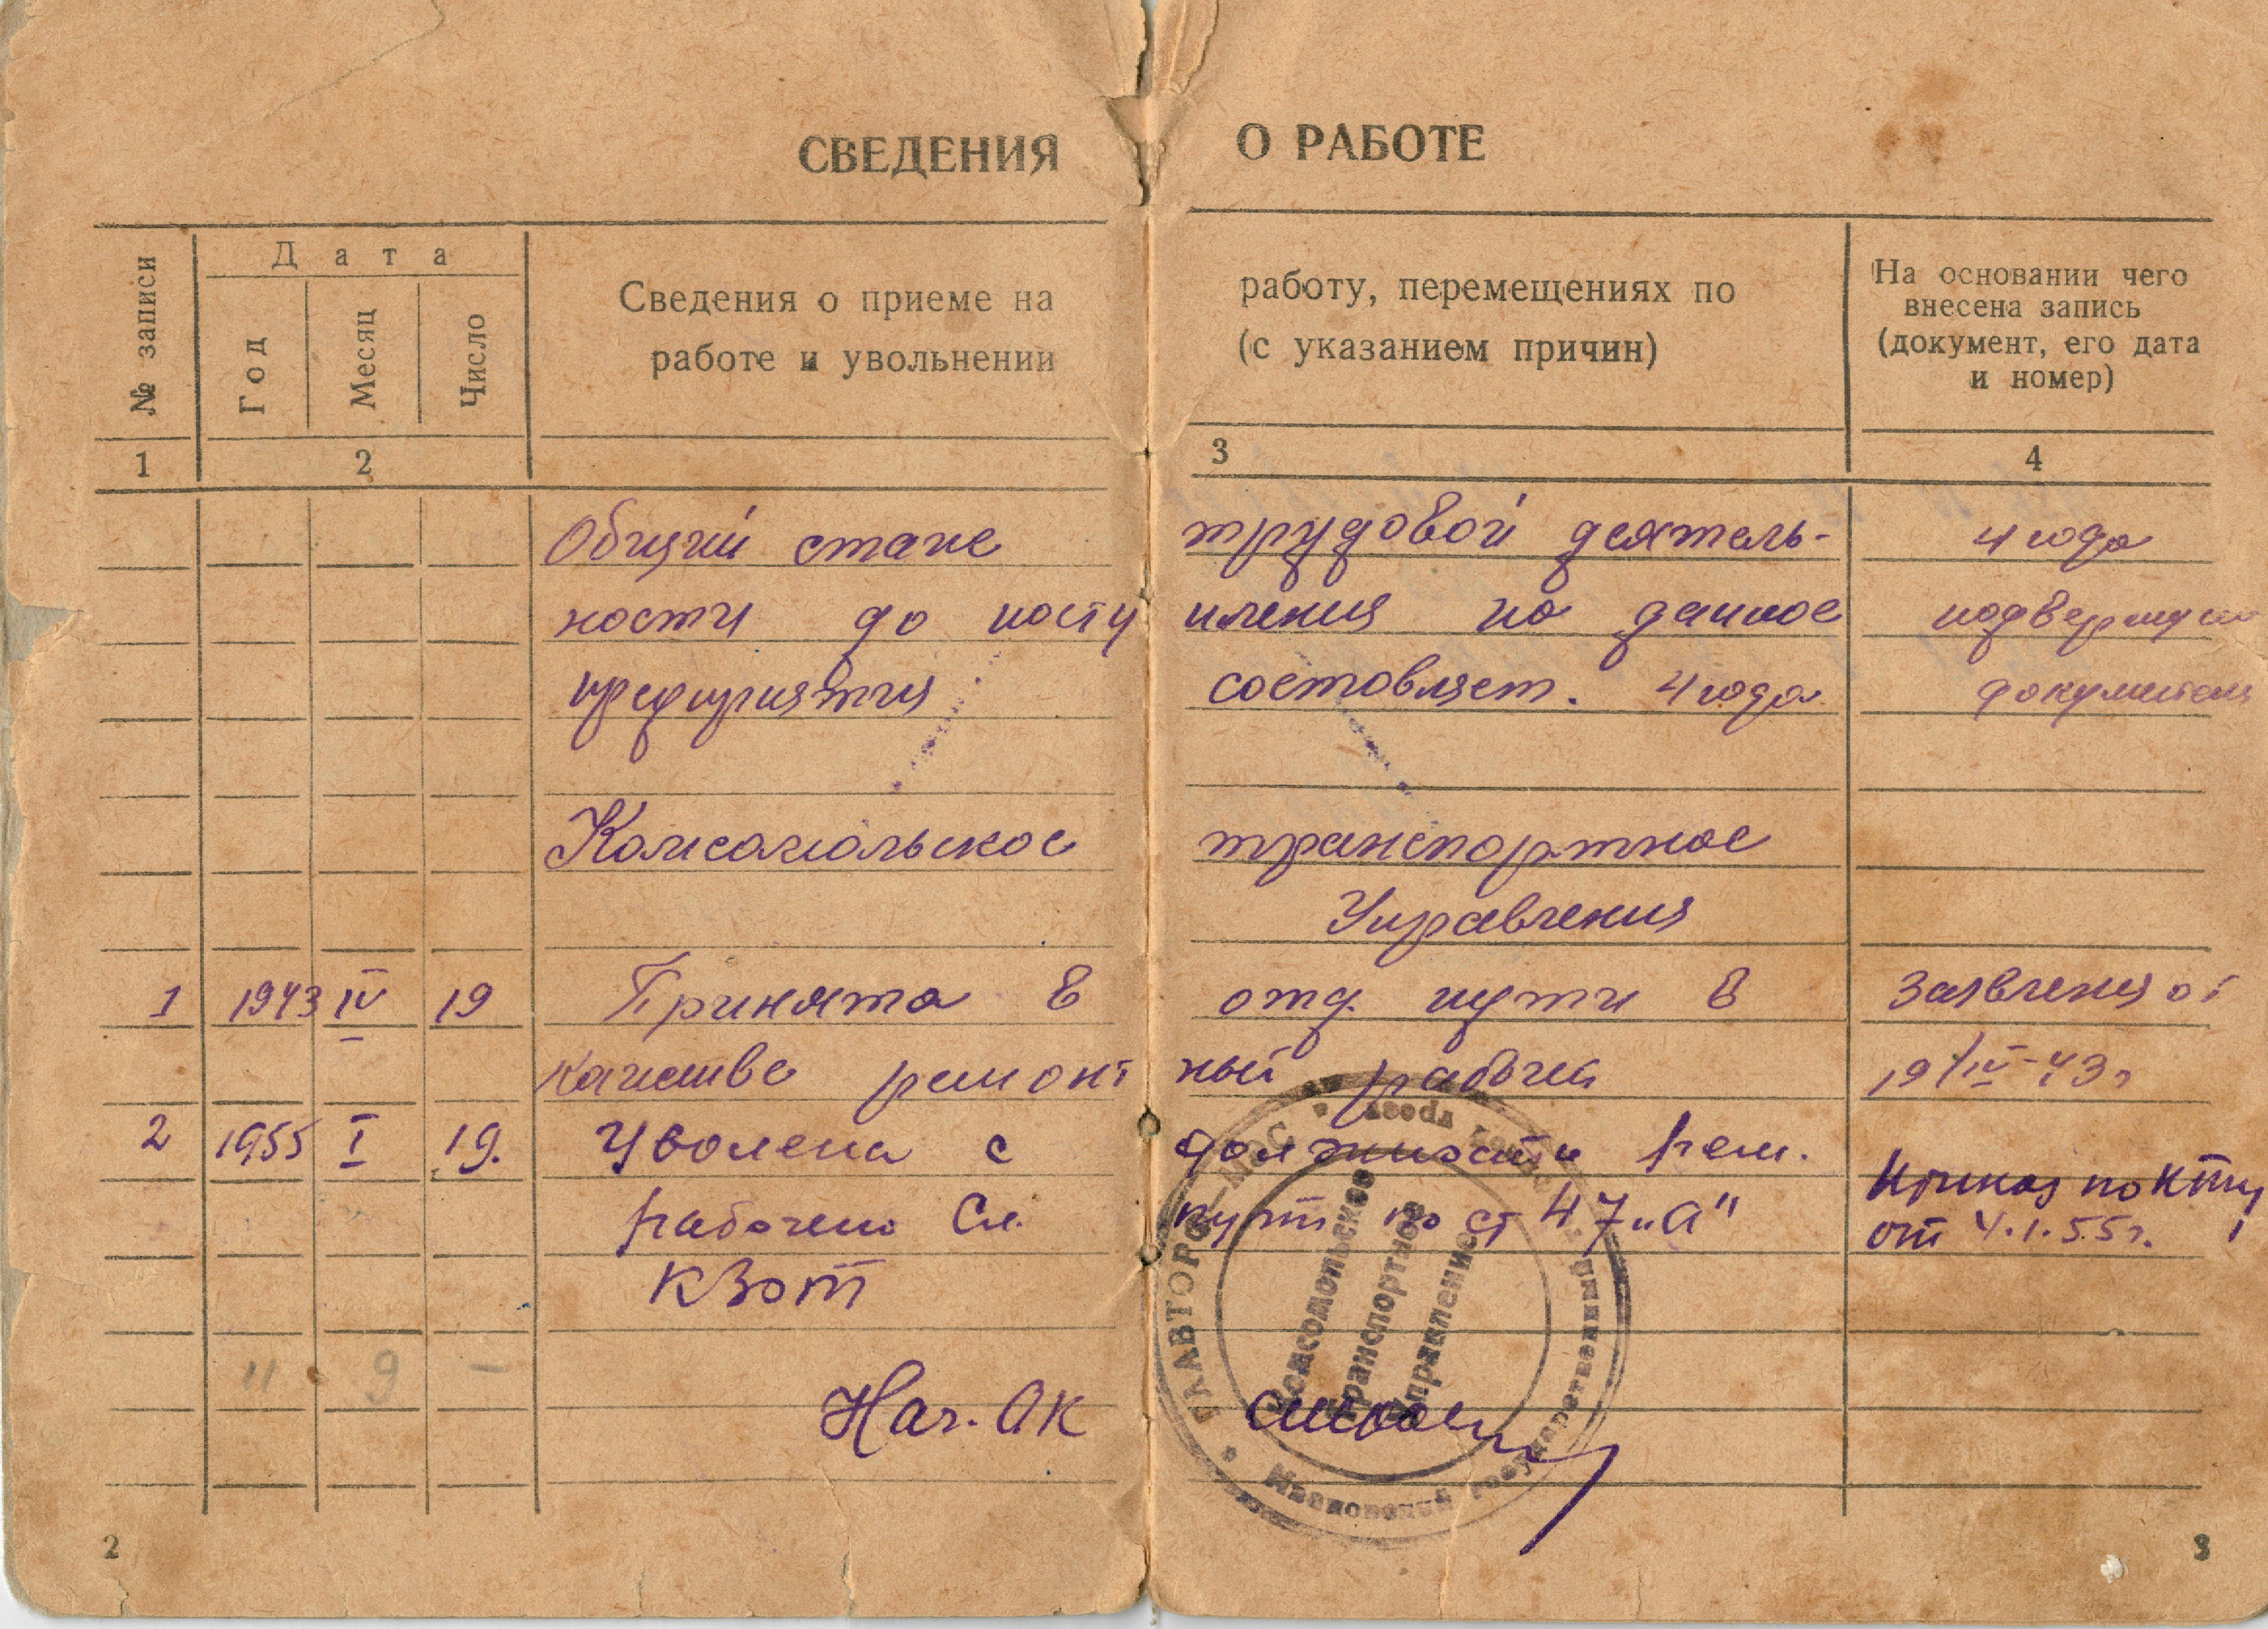 СВЕДЕНИЯ О РАБОТЕ
№ записи
Дата
Год
Месяц
Число
Сведения о приеме на работу, перемещениях по
работе и увольнении (с указанием причин)
На основании чего
внесена запись
(документ, его дата
и номер)
1 2 3 4
Общий стаже трудовой деятель- 4 года
ности до посту пления на данное
предприятия состовляет. 4 года
Комсомольское транспортное
Управления
1 1943 IV 19 Принята в отд. пути в Заявления от
качестве ремонт ный рабочея 19/IV-43г
2 1955 I 19. Уволена с должности рем.
рабочего Сл. пути по ст 47 „а" Приказ по КТУ
от 4.1.55г.
КЗОТ
11 9 -
Нач. ОК
Комсомольское
Транспортное
Управление
2
3